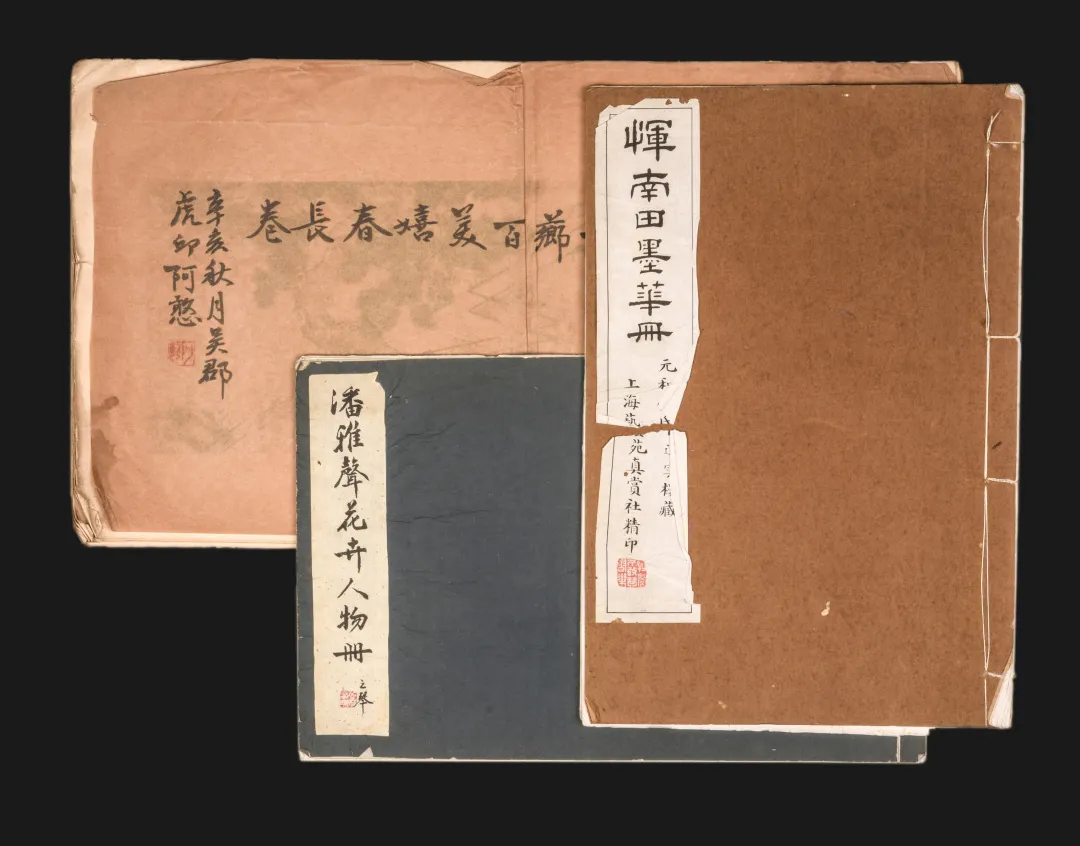 惲南田墨華冊
元和 藏
上海 苑真賞社精印
薌百美嬉春長卷
辛亥秋月吳郡
虎 阿憨
潘雅聲花卉人物冊